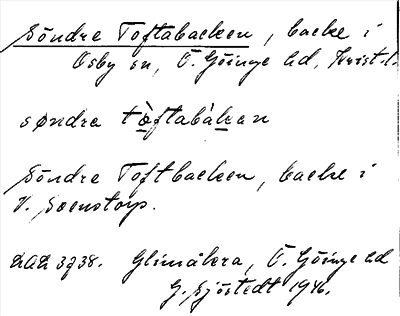 Söndre Toftabacken, backe i
Osby sn, Ö. Göinge hd, Krist. l.
søndra tòftabàkan
Söndre Toftbacken, backe i
V. Svenstorp.
3738. Glimåkra, Ö. Göinge hd
G. Sjöstedt 1946.